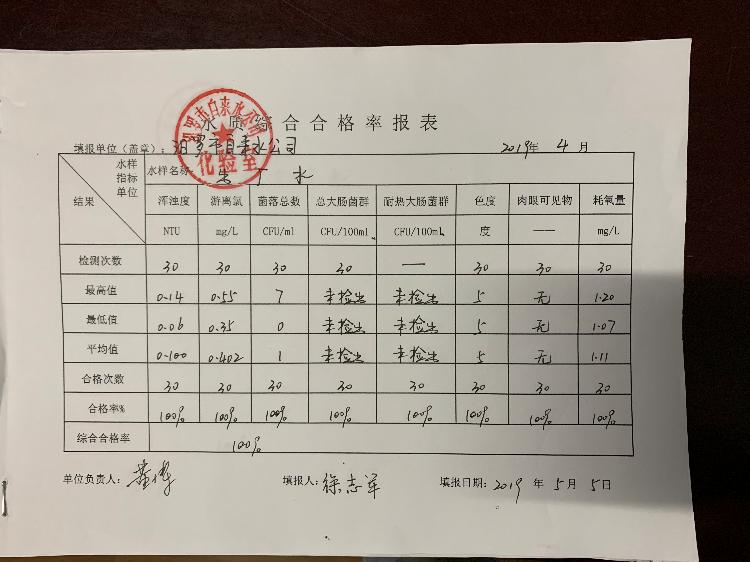 水质综合合格率报表
填报单位(盖章):汨罗市自来水公司 2019年 4 月
水样 指标 单位 结果 水样名称: 出厂水
浑浊度 游离氯 菌落总数 总大肠菌群 耐热大肠菌群 色度 肉眼可见物 耗氧量
NTU mg/L CFU/ml CFU/100ml CFU/100ml 度 —— mg/L
检测次数 30 30 30 30 — 30 30 30
最高值 0.14 0.55 7 未检出 未检出 5 无 1.20
最低值 0.06 0.35 0 未检出 未检出 5 无 1.07
平均值 0.100 0.402 1 未检出 未检出 5 无 1.11
合格次数 30 30 30 30 30 30 30 30
合格率% 100% 100% 100% 100% 100% 100% 100% 100%
综合合格率 100%
单位负责人: 填报人:徐志军 填报日期:2019 年 5 月 5 日
化验室